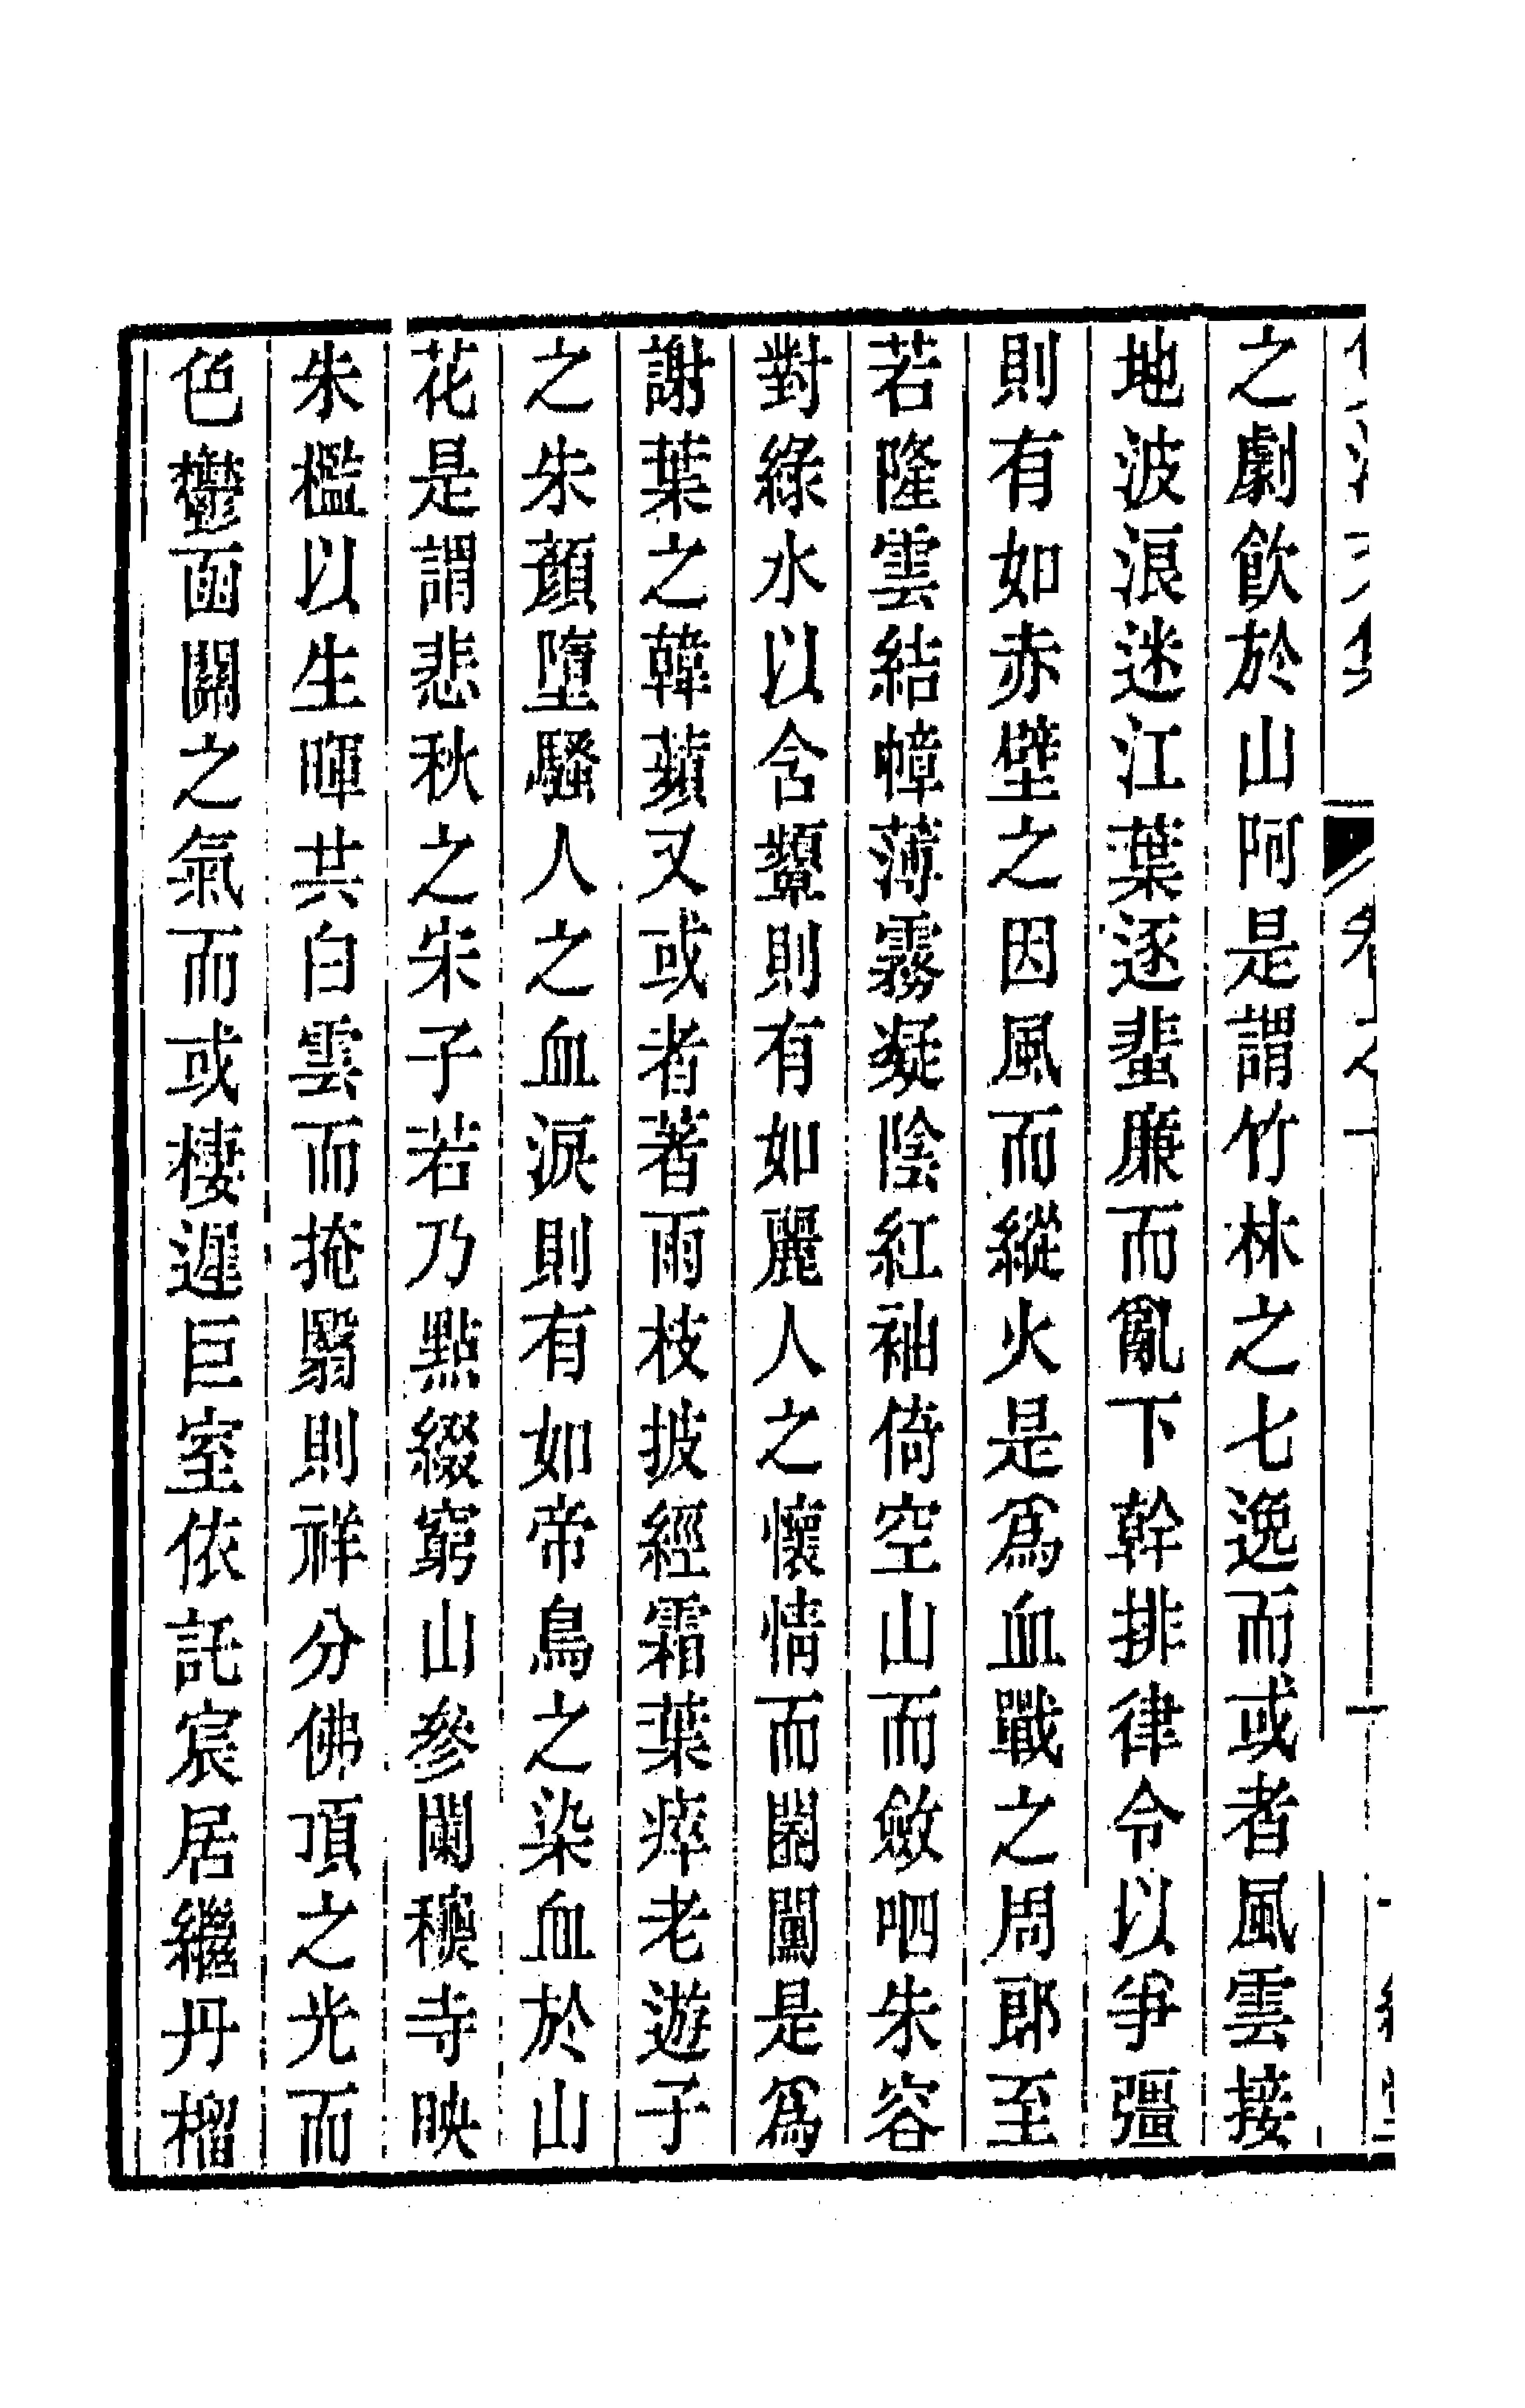 之劇飲於山阿是謂竹林之七逸而或者風雲接
地波浪迷江葉逐蜚廉而亂下幹排律令以爭彊
則有如赤壁之因風而縱火是爲血戰之周郎至
若隆雲結幛薄霧凝陰紅袖倚空山而斂呬朱容
對綠水以含顰則有如麗人之懷情而闘闈是爲
謝葉之韓蘋又或者著雨枝披經霜葉瘁老遊子
之朱顏墮騷人之血淚則有如帝鳥之染血於山
花是謂悲秋之宋子若乃點綴窮山參闌穠寺映
朱檻以生暉共白雲而掩翳則祥分佛頂之光而
色鬱函關之氣而或棲遲巨室依託宸居繼丹榴